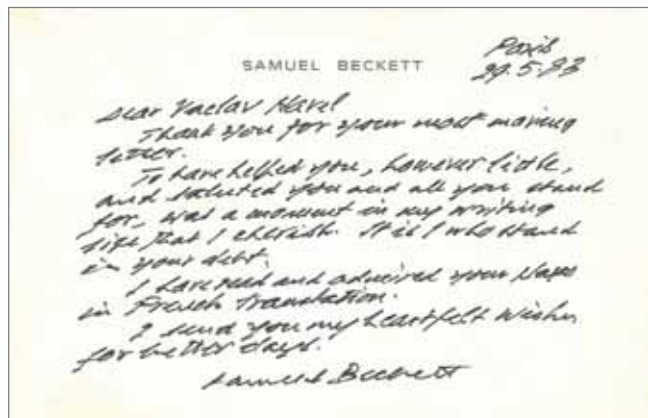 SAMUEL BECKETT
Paris
29.5.83
Dear Vaclav Havel
Thank you for your most moving
letter.
To have helped you, however little,
and saluted you and all you stand
for, was a moment in my writing
life that I cherish. It is I who stand
in your debt.
I have read and admired your plays
in French translation.
I send you my heartfelt wishes
for better days.
Samuel Beckett